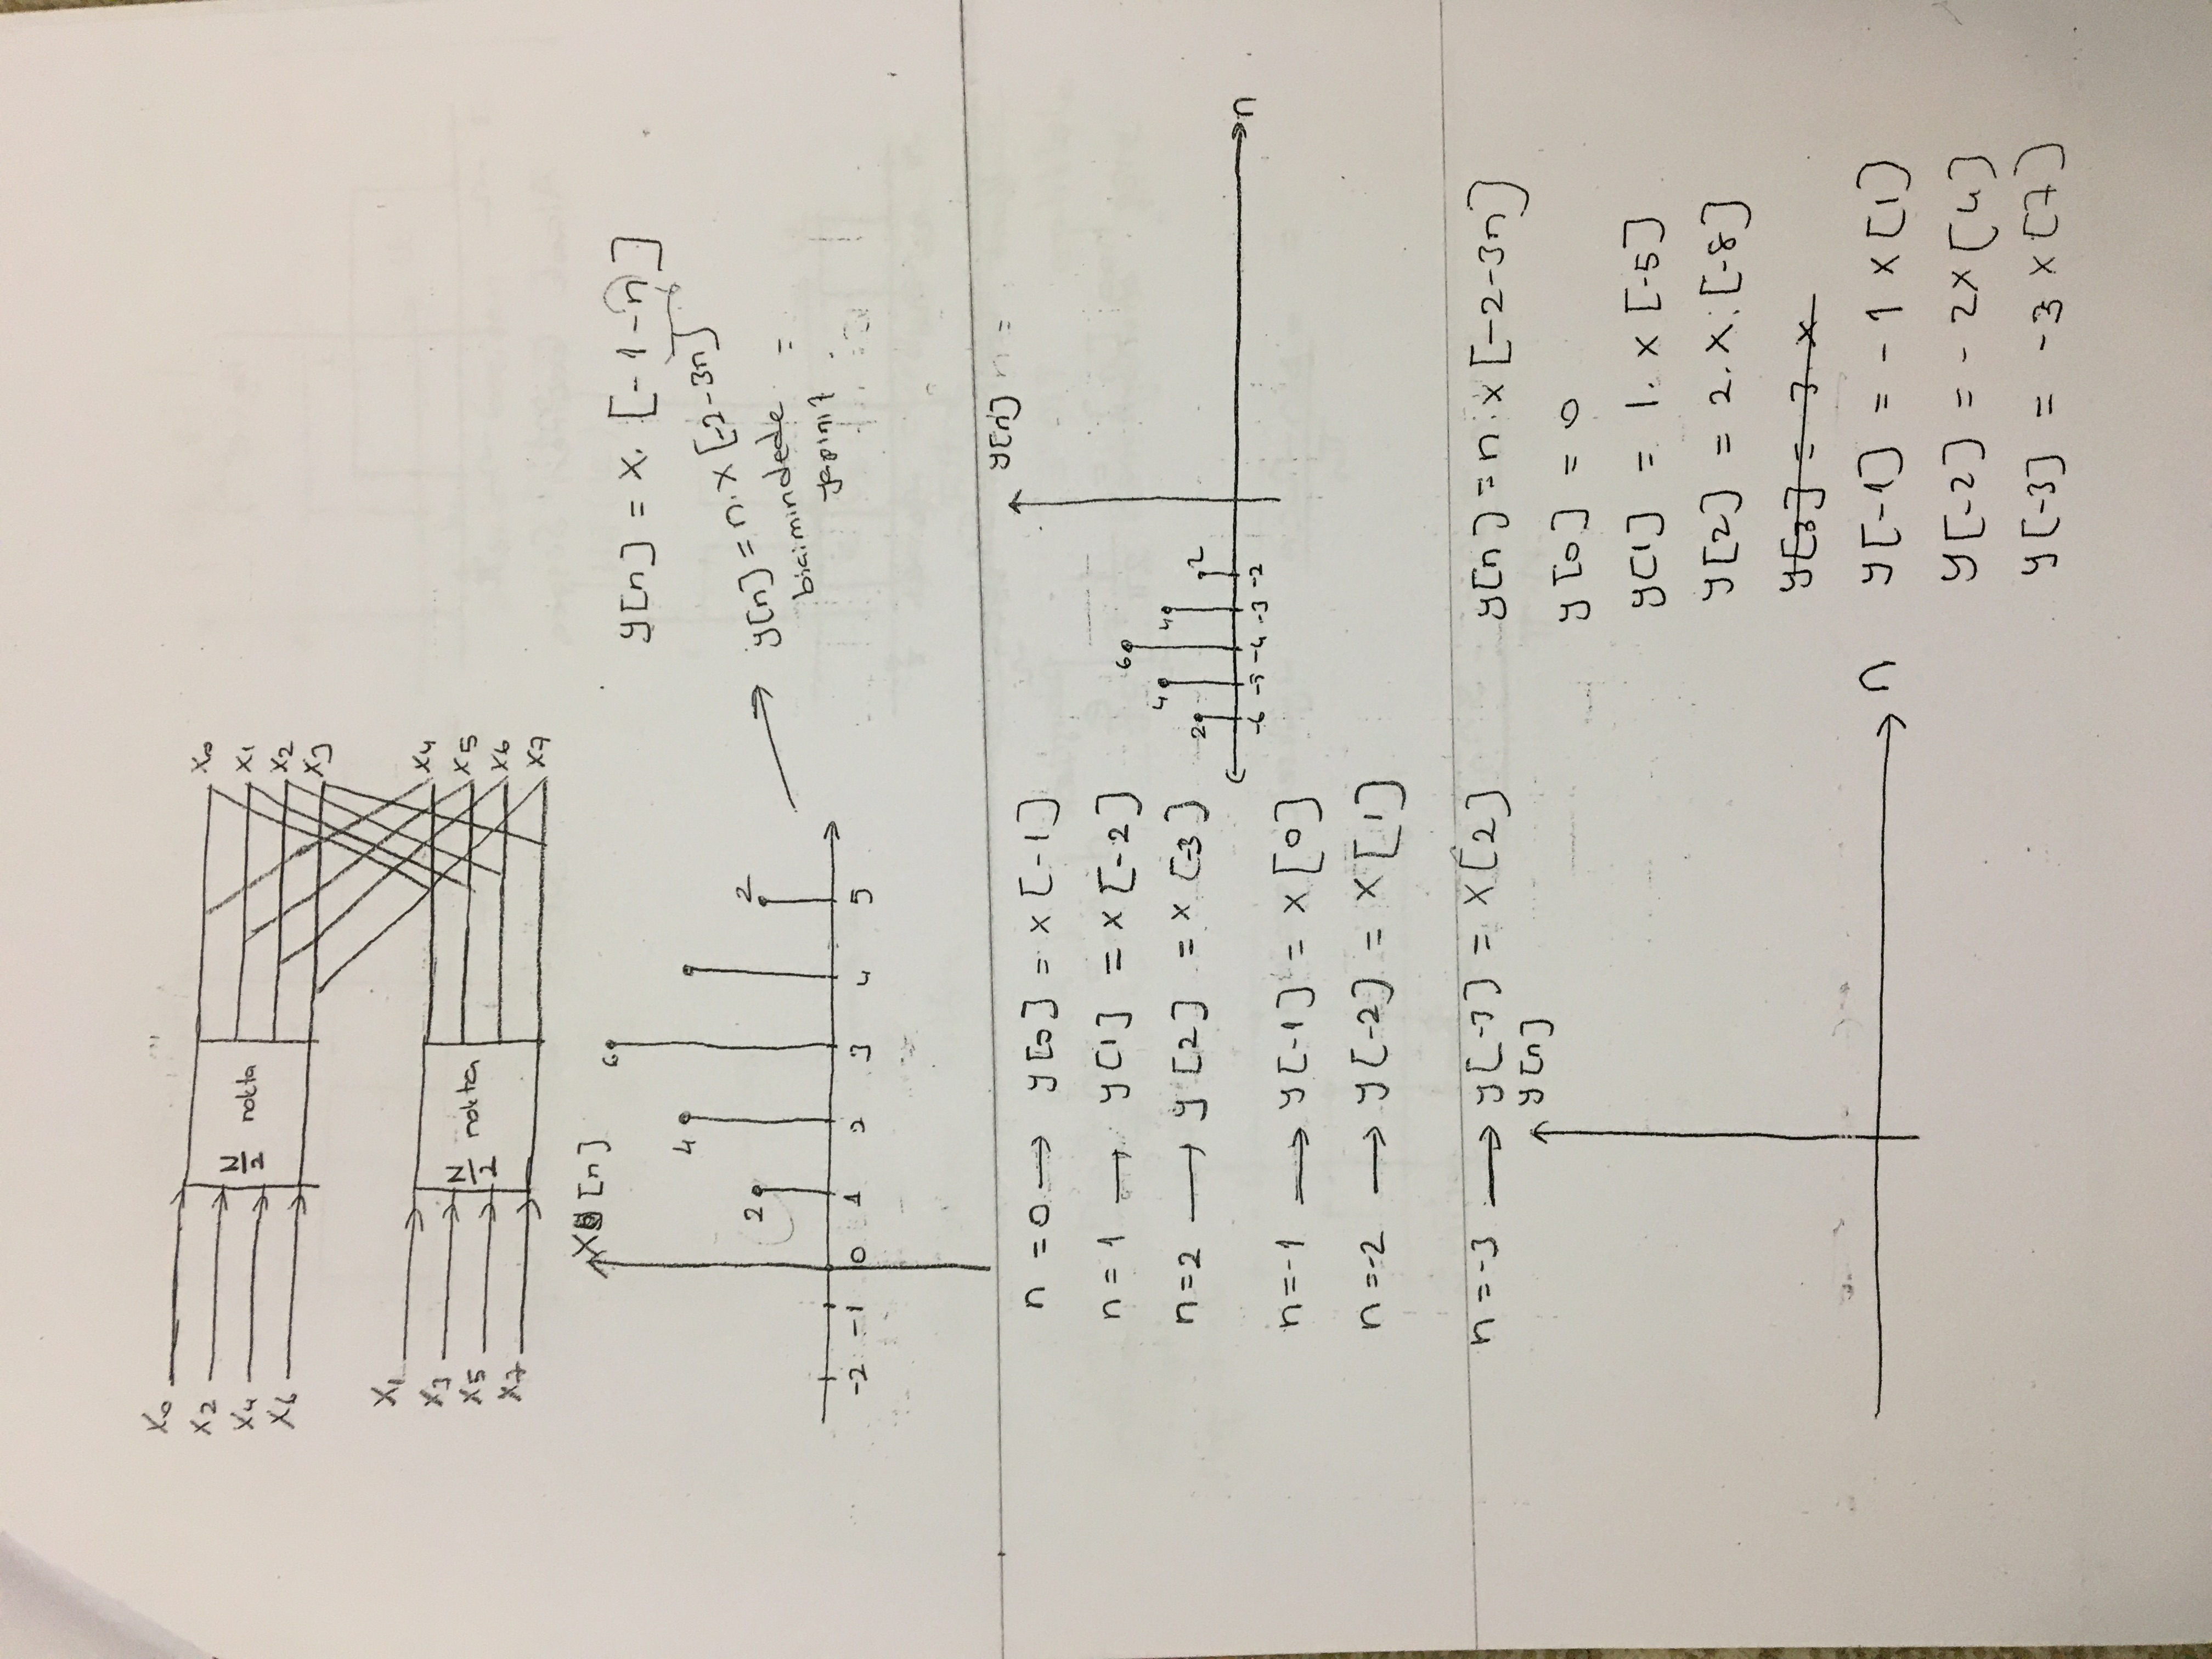 X₀
X₂
X₄
X₆
N/2 nokta
X₀
X₁
X₂
X₃
X₁
X₃
X₅
X₇
N/2 nokta
X₄
X₅
X₆
X₇
X[n]
2 4 6 2
-2 -1 0 1 2 3 4 5
y[n] = x. [-1-n]
y[n] = n. x [-2-3n]
biçimindede =
yapını?
n = 0 → y[0] = x[-1]
n = 1 → y[1] = x[-2]
n=2 → y[2] = x[-3]
n=-1 → y[-1] = x[0]
n=-2 → y[-2] = x[1]
n=-3 → y[-3] = x[2]
y[n] n =
2 4 6 4 2
-6 -5 -4 -3 -2
n
y[n]
n
y[n] = n.x[-2-3n]
y[0] = 0
y[1] = 1. x [-5]
y[2] = 2. x. [-8]
y[3] = 3 x
y[-1] = -1 x[1]
y[-2] = -2x[4]
y[-3] = -3 x[7]